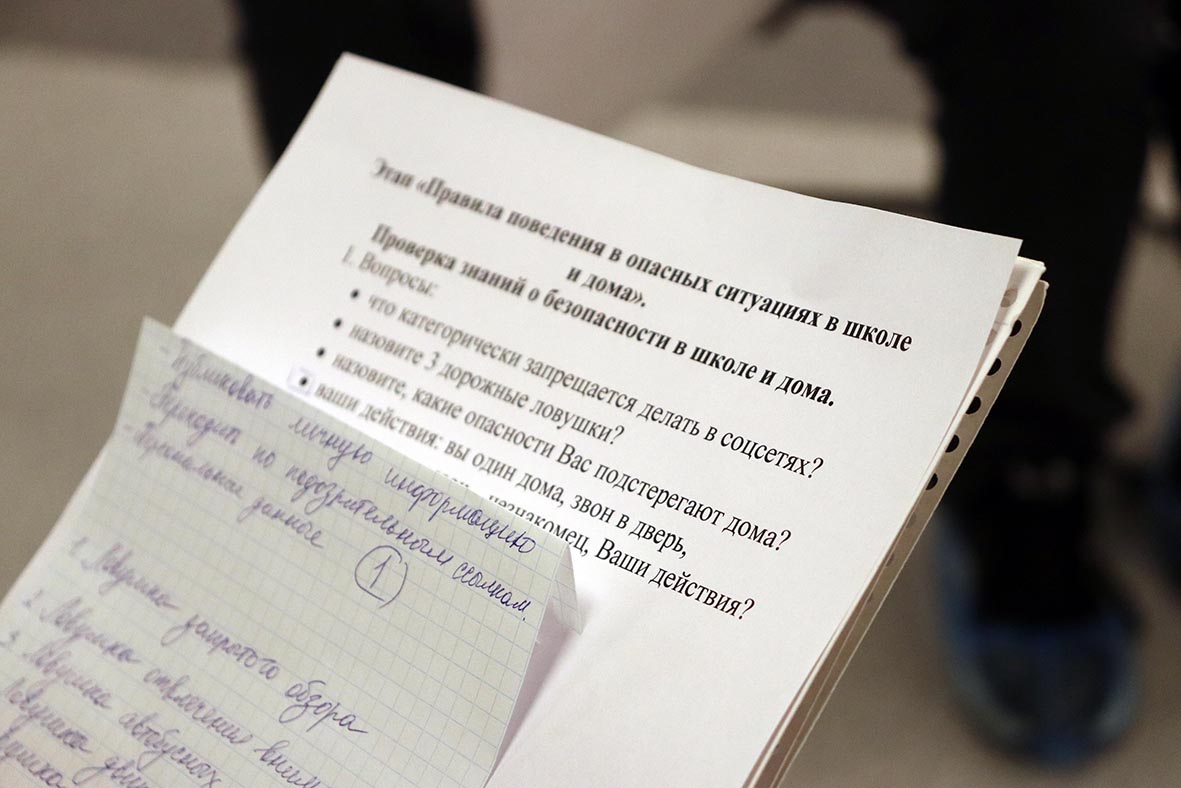 Этап «Правила поведения в опасных ситуациях в школе
и дома».
Проверка знаний о безопасности в школе и дома.
1. Вопросы:
• что категорически запрещается делать в соцсетях?
• назовите 3 дорожные ловушки?
• назовите, какие опасности Вас подстерегают дома?
• ваши действия: вы один дома, звон в дверь,
незнакомец, Ваши действия?
- Публиковать личную информацию
- Переходить по подозрительным ссылкам.
- Персональные данные
1
1. Ловушка закрытого обзора
2. Ловушка отвлечения вним
3. Ловушка автобусных
Ловушка